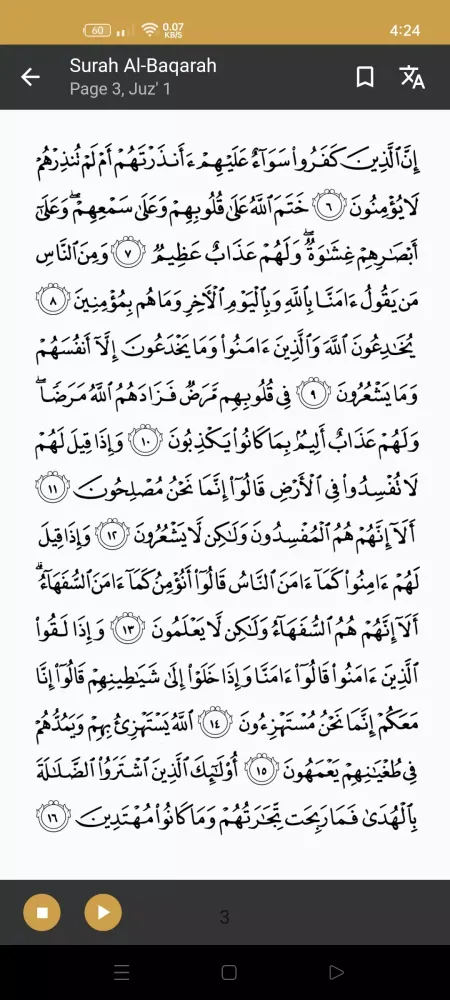 60 0.07 KB/S 4:24
Surah Al-Baqarah
Page 3, Juz' 1
إِنَّ ٱلَّذِينَ كَفَرُوا۟ سَوَآءٌ عَلَيْهِمْ ءَأَنذَرْتَهُمْ أَمْ لَمْ تُنذِرْهُمْ
لَا يُؤْمِنُونَ ٦ خَتَمَ ٱللَّهُ عَلَىٰ قُلُوبِهِمْ وَعَلَىٰ سَمْعِهِمْ ۖ وَعَلَىٰٓ
أَبْصَـٰرِهِمْ غِشَـٰوَةٌ ۖ وَلَهُمْ عَذَابٌ عَظِيمٌ ٧ وَمِنَ ٱلنَّاسِ
مَن يَقُولُ ءَامَنَّا بِٱللَّهِ وَبِٱلْيَوْمِ ٱلْـَٔاخِرِ وَمَا هُم بِمُؤْمِنِينَ ٨
يُخَـٰدِعُونَ ٱللَّهَ وَٱلَّذِينَ ءَامَنُوا۟ وَمَا يَخْدَعُونَ إِلَّآ أَنفُسَهُمْ
وَمَا يَشْعُرُونَ ٩ فِى قُلُوبِهِم مَّرَضٌ فَزَادَهُمُ ٱللَّهُ مَرَضًا ۖ
وَلَهُمْ عَذَابٌ أَلِيمٌۢ بِمَا كَانُوا۟ يَكْذِبُونَ ١٠ وَإِذَا قِيلَ لَهُمْ
لَا تُفْسِدُوا۟ فِى ٱلْأَرْضِ قَالُوٓا۟ إِنَّمَا نَحْنُ مُصْلِحُونَ ١١
أَلَآ إِنَّهُمْ هُمُ ٱلْمُفْسِدُونَ وَلَـٰكِن لَّا يَشْعُرُونَ ١٢ وَإِذَا قِيلَ
لَهُمْ ءَامِنُوا۟ كَمَآ ءَامَنَ ٱلنَّاسُ قَالُوٓا۟ أَنُؤْمِنُ كَمَآ ءَامَنَ ٱلسُّفَهَآءُ ۗ
أَلَآ إِنَّهُمْ هُمُ ٱلسُّفَهَآءُ وَلَـٰكِن لَّا يَعْلَمُونَ ١٣ وَإِذَا لَقُوا۟
ٱلَّذِينَ ءَامَنُوا۟ قَالُوٓا۟ ءَامَنَّا وَإِذَا خَلَوْا۟ إِلَىٰ شَيَـٰطِينِهِمْ قَالُوٓا۟ إِنَّا
مَعَكُمْ إِنَّمَا نَحْنُ مُسْتَهْزِءُونَ ١٤ ٱللَّهُ يَسْتَهْزِئُ بِهِمْ وَيَمُدُّهُمْ
فِى طُغْيَـٰنِهِمْ يَعْمَهُونَ ١٥ أُو۟لَـٰٓئِكَ ٱلَّذِينَ ٱشْتَرَوُا۟ ٱلضَّلَـٰلَةَ
بِٱلْهُدَىٰ فَمَا رَبِحَت تِّجَـٰرَتُهُمْ وَمَا كَانُوا۟ مُهْتَدِينَ ١٦
3